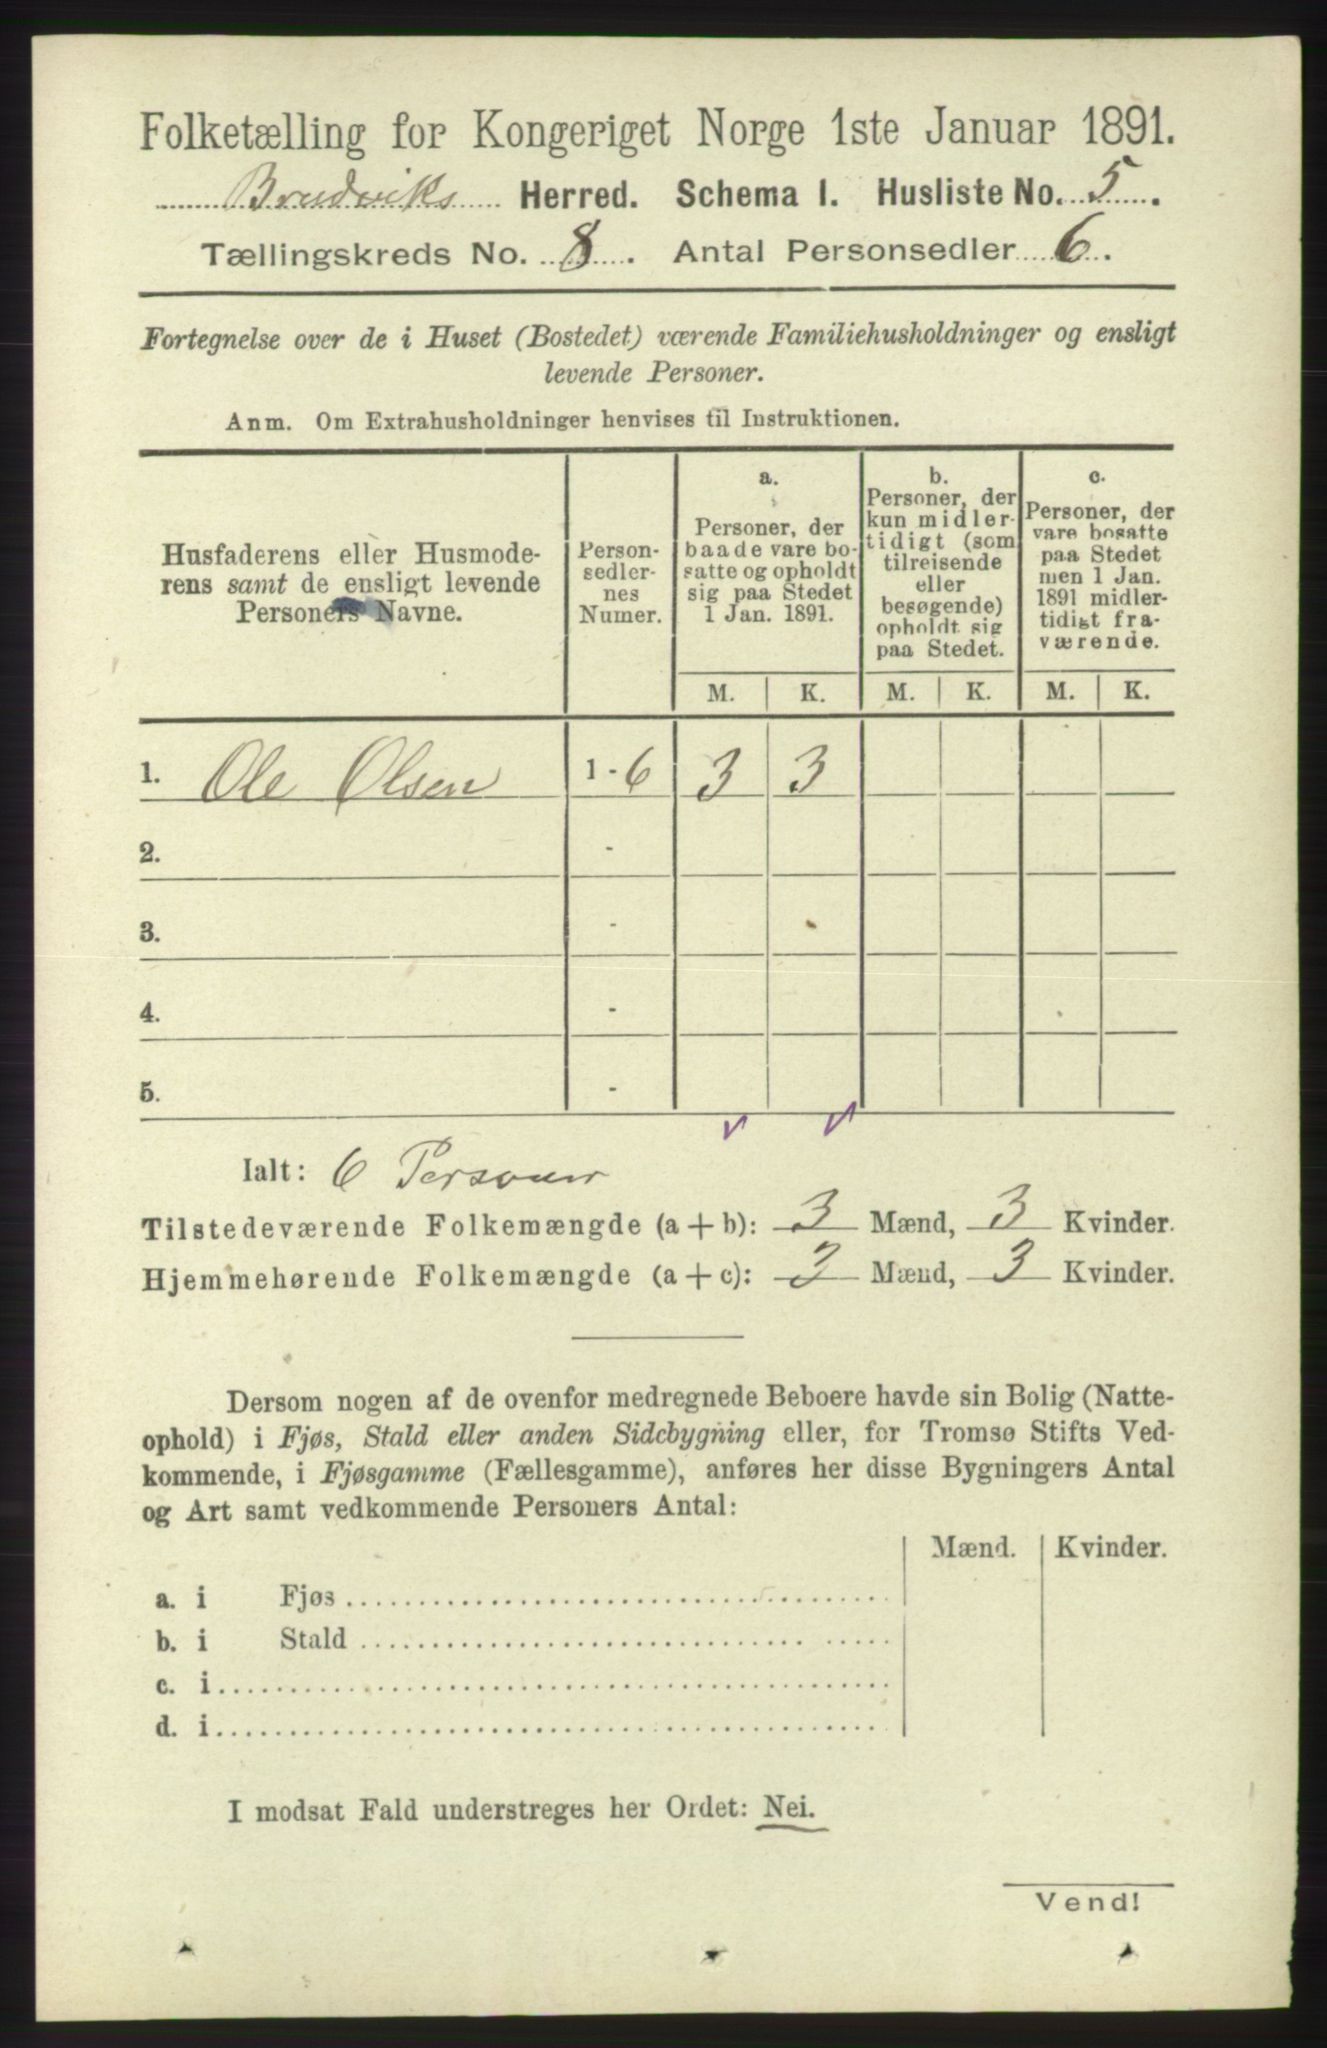 Folketælling for Kongeriget Norge 1ste Januar 1891.
Bruviks Herred. Schema I. Husliste No. 5.
Tællingskreds No. 8. Antal Personsedler 6.
Fortegnelse over de i Huset (Bostedet) værende Familiehusholdninger og ensligt
levende Personer.
Anm. Om Extrahusholdninger henvises til Instruktionen.
Husfaderens eller Husmode-
rens samt de ensligt levende
Personers Navne.
Person-
sedler-
nes
Numer.
a.
Personer, der
baade vare bo-
satte og opholdt
sig paa Stedet
1 Jan. 1891.
b.
Personer, der
kun midler-
tidigt (som
tilreisende
eller
besøgende)
opholdt sig
paa Stedet.
c.
Personer, der
vare bosatte
paa Stedet
men 1 Jan.
1891 midler-
tidigt fra-
værende.
M. K. M. K. M. K.
1. Ole Olsen 1 - 6 3 3
2. -
3. -
4. -
5. -
Ialt: 6 Personer
Tilstedeværende Folkemængde (a + b): 3 Mænd, 3 Kvinder.
Hjemmehørende Folkemængde (a + c): 3 Mænd, 3 Kvinder.
Dersom nogen af de ovenfor medregnede Beboere havde sin Bolig (Natte-
ophold) i Fjøs, Stald eller anden Sidebygning eller, for Tromsø Stifts Ved-
kommende, i Fjøsgamme (Fællesgamme), anføres her disse Bygningers Antal
og Art samt vedkommende Personers Antal:
Mænd. Kvinder.
a. i Fjøs
b. i Stald
c. i
d. i
I modsat Fald understreges her Ordet: Nei.
Vend!